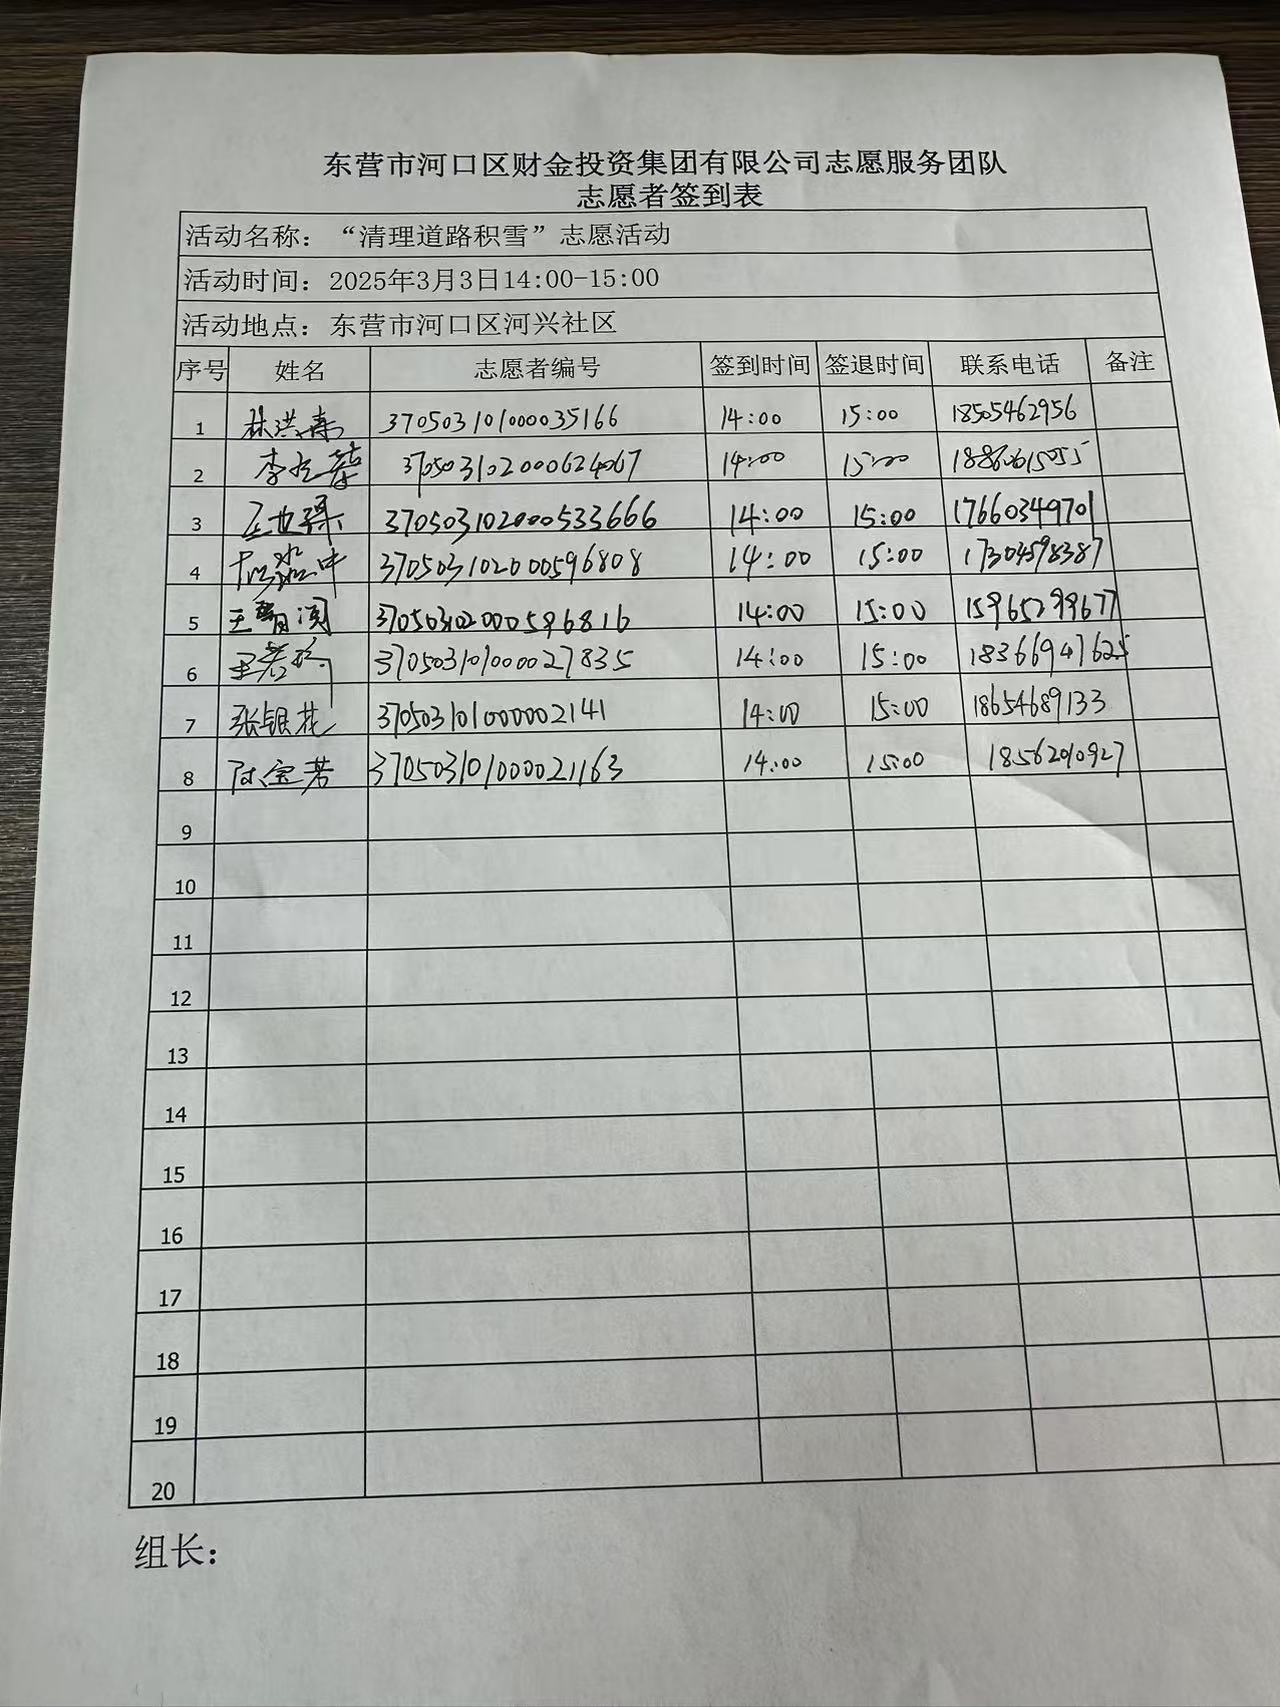 东营市河口区财金投资集团有限公司志愿服务团队
志愿者签到表
活动名称：“清理道路积雪”志愿活动
活动时间：2025年3月3日14:00-15:00
活动地点：东营市河口区河兴社区
序号 姓名 志愿者编号 签到时间 签退时间 联系电话 备注
1 林洪寿 370503101000035166 14:00 15:00 18505462956
2 370503102000624067 14:00 15:00
3 370503102000533666 14:00 15:00 17660349701
4 370503102000596808 14:00 15:00 17304598387
5 370503102000596816 14:00 15:00 15965299677
6 370503101000027835 14:00 15:00 18366947625
7 张银花 370503101000002141 14:00 15:00 18654689133
8 陈宝芳 370503101000021163 14:00 15:00 18562010927
9
10
11
12
13
14
15
16
17
18
19
20
组长：